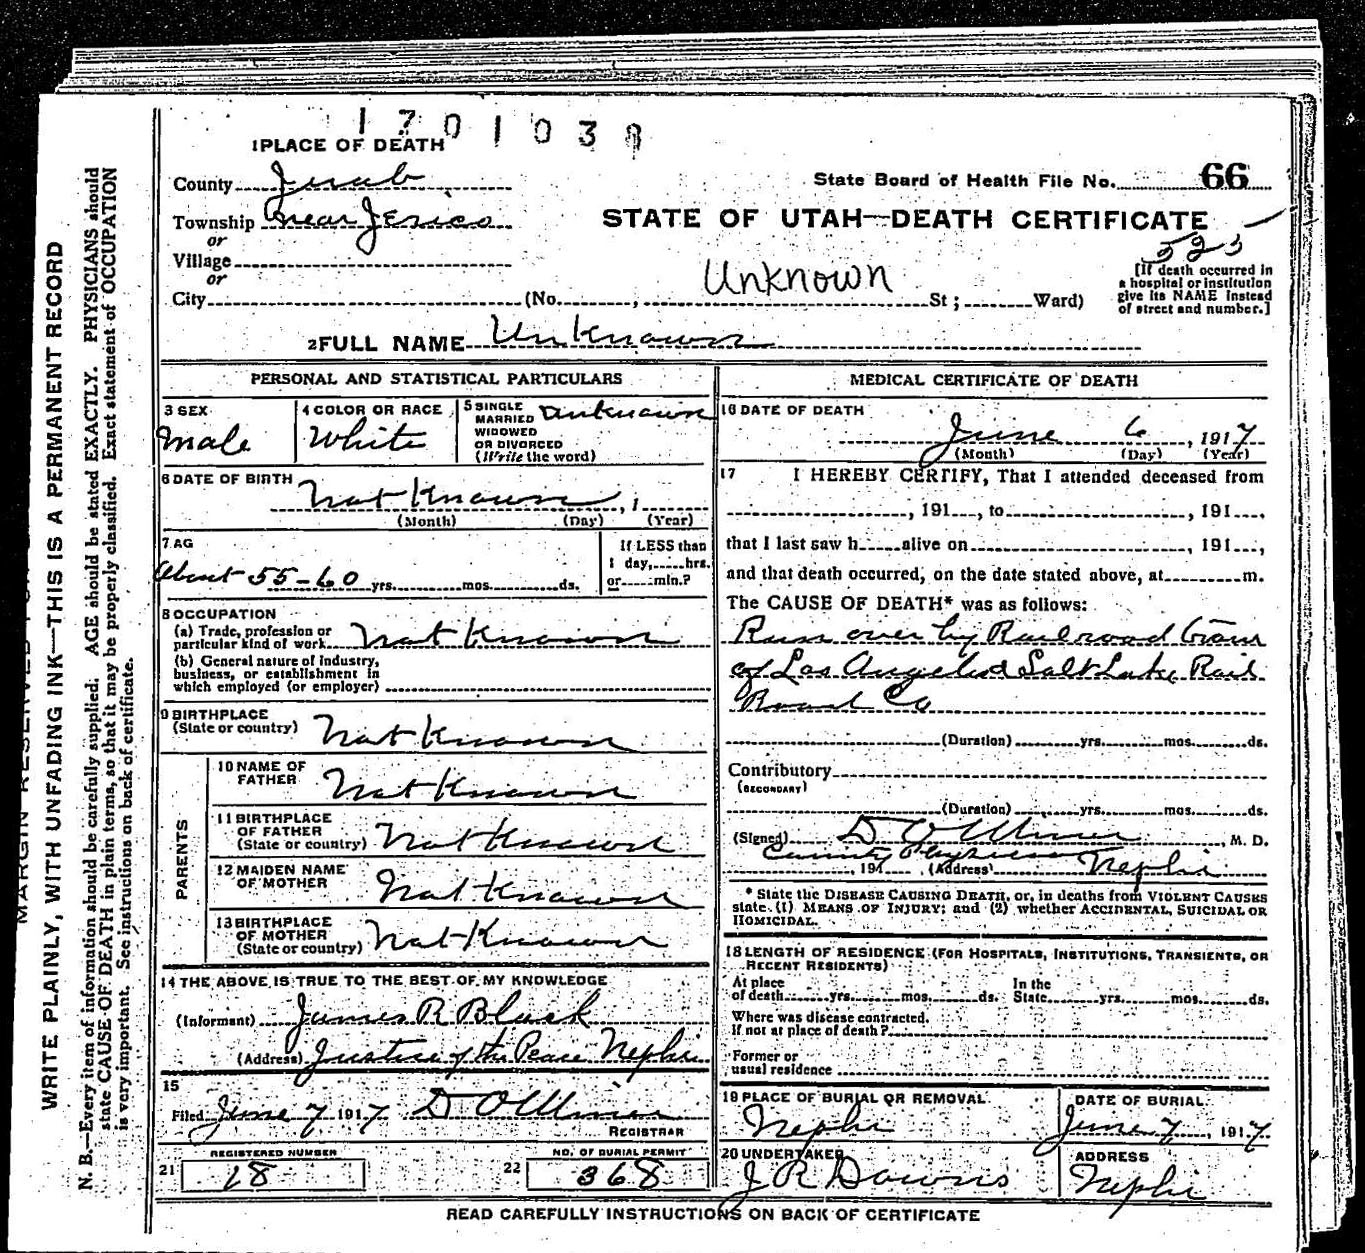 1701038
1 PLACE OF DEATH
County Juab
State Board of Health File No. 66
Township near Jerico
STATE OF UTAH—DEATH CERTIFICATE
or
Village
525
or
[If death occurred in
a hospital or institution
give its NAME instead
of street and number.]
Unknown
City (No. , St ; Ward)
2 FULL NAME Unknown
PERSONAL AND STATISTICAL PARTICULARS
3 SEX
Male
4 COLOR OR RACE
White
5 SINGLE
MARRIED
WIDOWED
OR DIVORCED
(Write the word)
unknown
6 DATE OF BIRTH Not Known , 1
(Month) (Day) (Year)
7 AG
About 55-60 yrs. mos. ds.
If LESS than
1 day, hrs.
or min.?
8 OCCUPATION
(a) Trade, profession or
particular kind of work Not Known
(b) General nature of industry,
business, or establishment in
which employed (or employer)
9 BIRTHPLACE
(State or country) Not Known
PARENTS
10 NAME OF
FATHER Not Known
11 BIRTHPLACE
OF FATHER
(State or country) Not Known
12 MAIDEN NAME
OF MOTHER Not Known
13 BIRTHPLACE
OF MOTHER
(State or country) Not Known
14 THE ABOVE IS TRUE TO THE BEST OF MY KNOWLEDGE
(Informant) James R Black
(Address) Justice of the Peace Nephi
15
Filed June 7 1917
REGISTRAR
REGISTERED NUMBER
21 18
NO. OF BURIAL PERMIT
22 368
MEDICAL CERTIFICATE OF DEATH
16 DATE OF DEATH
June 6, 1917
(Month) (Day) (Year)
17 I HEREBY CERTIFY, That I attended deceased from
, 191 , to , 191 ,
that I last saw h alive on , 191 ,
and that death occurred, on the date stated above, at m.
The CAUSE OF DEATH* was as follows:
Run over by Railroad train
of Los Angeles & Salt Lake Rail
Road Co
(Duration) yrs. mos. ds.
Contributory
(SECONDARY)
(Duration) yrs. mos. ds.
(Signed) , M. D.
County Physician Nephi
, 191 (Address)
* State the DISEASE CAUSING DEATH, or, in deaths from VIOLENT CAUSES
state (1) MEANS OF INJURY; and (2) whether ACCIDENTAL, SUICIDAL OR
HOMICIDAL.
18 LENGTH OF RESIDENCE (FOR HOSPITALS, INSTITUTIONS, TRANSIENTS, OR
RECENT RESIDENTS)
At place In the
of death yrs. mos. ds. State yrs. mos. ds.
Where was disease contracted,
if not at place of death?
Former or
usual residence
19 PLACE OF BURIAL OR REMOVAL
Nephi
DATE OF BURIAL
June 7, 1917
20 UNDERTAKER
J R Downs
ADDRESS
Nephi
READ CAREFULLY INSTRUCTIONS ON BACK OF CERTIFICATE
MARGIN RESERVED
WRITE PLAINLY, WITH UNFADING INK—THIS IS A PERMANENT RECORD
N. B.—Every item of information should be carefully supplied. AGE should be stated EXACTLY. PHYSICIANS should
state CAUSE OF DEATH in plain terms, so that it may be properly classified. Exact statement of OCCUPATION
is very important. See instructions on back of certificate.